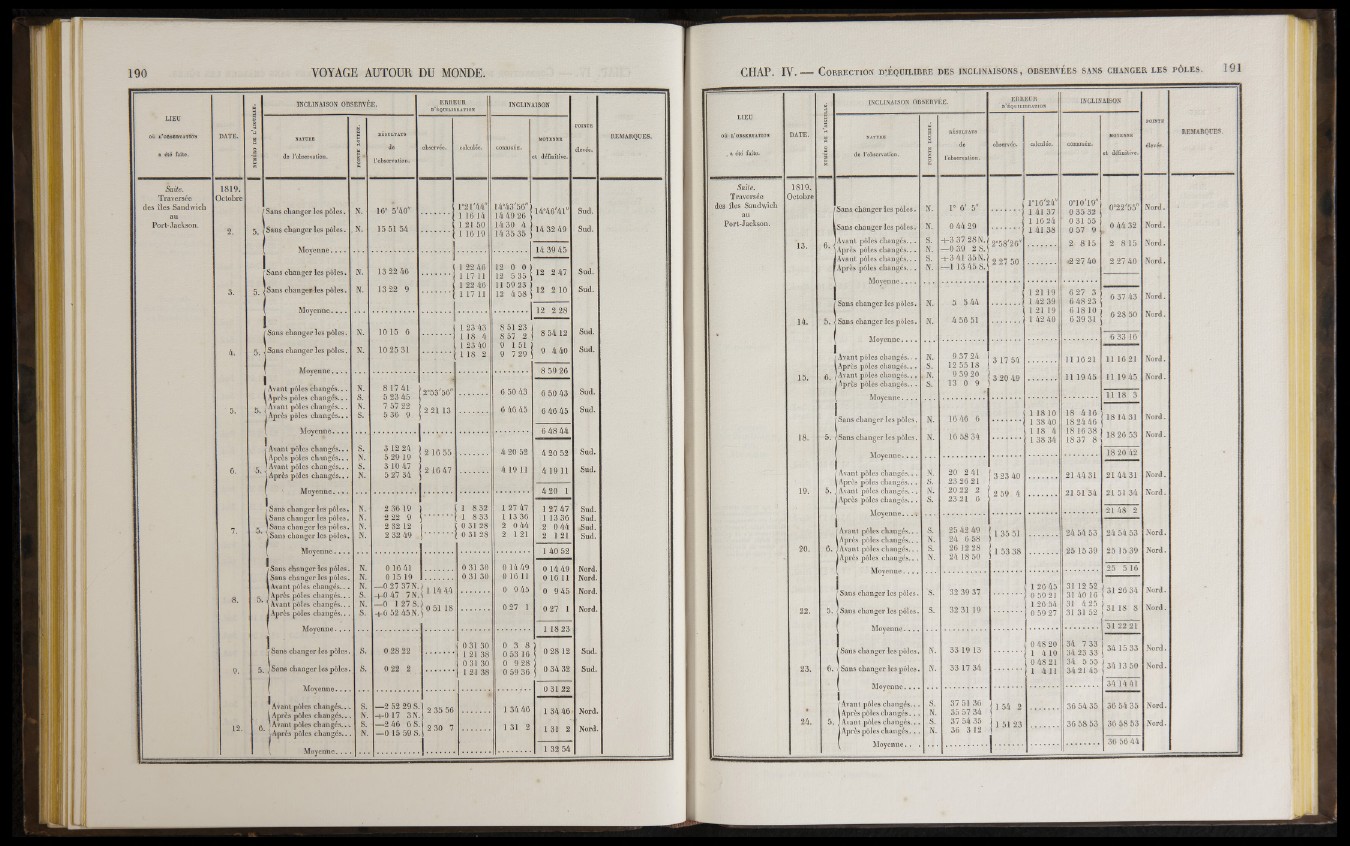 190 VOYAGE AUTOUR DU MONDE.
LIEU où l'observation a été faite. DATE. NUMÉRO DE L'AIGUILLE. INCLINAISON OBSERVÉE. ERREUR D'ÉQUILIBRATION INCLINAISON POINTE élevée. REMARQUES.
NATURE de l'observation. RÉSULTATS de l'observation. observée. calculée. conclue. MOYENNE et définitive.
Suite. Traversée des îles Sandwich au Port-Jackson.
1819. Octobre
2. 5. Sans changer les pôles. N. 16° 5'40" ........ 1°21'44" 14°43'56" 14°46'41" Sud.
1 16 14 14 49 26
Sans changer les pôles. N. 15 51 54 ........ 1 21 50 14 30 4 14 32 49 Sud.
1 16 19 14 35 35
Moyenne.... 14 39 45
3. 5. Sans changer les pôles. N. 13 22 46 ........ 1 22 46 12 0 0 12 2 47 Sud.
1 17 11 12 5 35
Sans changer les pôles. N. 13 22 9 ........ 1 22 40 11 59 23 12 2 10 Sud.
1 17 11 12 4 58
Moyenne.... 12 2 28
4. 5. Sans changer les pôles. N. 10 15 6 ........ 1 23 43 8 51 23 8 54 12 Sud.
1 18 4 8 57 2
Sans changer les pôles. N. 10 25 31 ........ 1 23 40 9 1 51 9 4 40 Sud.
1 18 2 9 7 29
Moyenne.... 8 59 26
5. 5. Avant pôles changés... N. 8 17 41 2°55'56" ........ 6 50 43 6 50 43 Sud.
Après pôles changés... S. 5 23 45
Avant pôles changés... N. 7 57 22 2 21 13 ........ 6 46 45 6 46 45 Sud.
Après pôles changés... S. 5 36 9
Moyenne.... 6 48 44
6. 5. Avant pôles changés... S. 3 12 24 2 16 55 ........ 4 20 52 4 20 52 Sud.
Après pôles changés... N. 5 29 19
Avant pôles changés... S. 3 10 47 2 16 47 ........ 4 19 11 4 19 11 Sud.
Après pôles changés... N. 5 27 34
Moyenne.... 4 20 1
7. 5. Sans changer les pôles. N. 2 36 19 ........ 1 8 32 1 27 47 1 27 47 Sud.
Sans changer les pôles. N. 2 22 9 1 8 33 1 13 36 1 13 36 Sud.
Sans changer les pôles. N. 2 32 12 ........ 0 31 28 2 0 44 2 0 44 Sud.
Sans changer les pôles. N. 2 32 49 0 31 28 2 1 21 2 1 21 Sud.
Moyenne.... 1 40 52
8. 5. Sans changer les pôles. N. 0 16 41 ........ 0 31 30 0 14 49 0 14 49 Nord.
Sans changer les pôles. N. 0 15 19 ........ 0 31 30 0 16 11 0 16 11 Nord.
Avant pôles changés... N. —0 27 37 N. 1 14 44 ........ 0 9 45 0 9 45 Nord.
Après pôles changés... S. +0 47 7 N.
Avant pôles changés... N. —0 1 27 S. 0 51 18 ........ 0 27 1 0 27 1 Nord.
Après pôles changés... S. +0 52 45 N.
Moyenne.... 1 18 23
9. 5. Sans changer les pôles. S. 0 28 22 ........ 0 31 30 0 3 8 0 28 12 Sud.
1 21 38 0 53 16
Sans changer les pôles. S. 0 22 2 ........ 0 31 30 0 9 28 0 34 32 Sud.
1 21 38 0 59 36
Moyenne.... 0 31 22
12. 6. Avant pôles changés... S. —2 52 29 S. 2 35 56 ........ 1 34 46 1 34 46 Nord.
Après pôles changés... N. +0 17 3 N.
Avant pôles changés... S. —2 46 6 S. 2 30 7 ........ 1 31 2 1 31 2 Nord.
Après pôles changés... N. —0 15 59 S.
Moyenne.... 1 32 54
CHAP. IV. — CORRECTION D'ÉQUILIBRE DES INCLINAISONS, OBSERVÉES SANS CHANGER LES PÔLES. 191
LIEU où l'observation a été faite. DATE. NUMÉRO DE L'AIGUILLE. INCLINAISON OBSERVÉE. ERREUR D'ÉQUILIBRATION INCLINAISON POINTE élevée. REMARQUES.
NATURE de l'observation. RÉSULTATS de l'observation. observée. calculée. conclue. MOYENNE et définitive.
Suite. Traversée des îles Sandwich au Port-Jackson.
1819. Octobre
13. 6. Sans changer les pôles. N. 1° 6' 5" ........ 1°16'24" 0°10'19" 0°22'55" Nord.
1 41 37 0 35 32
Sans changer les pôles. N. 0 44 29 ........ 1 16 24 0 31 55 0 44 32 Nord.
1 41 38 0 57 9
Avant pôles changés... S. +3 37 28 N. 2°58'26" ........ 2 8 15 2 8 15 Nord.
Après pôles changés... N. —0 39 2 S.
Avant pôles changés... S. +3 41 35 N. 2 27 50 ........ 2 27 40 2 27 40 Nord.
Après pôles changés... N. —1 13 45 S.
Moyenne....
14. 5. Sans changer les pôles. N. 5 5 44 ........ 1 21 19 6 27 3 6 37 43 Nord.
1 42 39 6 48 23
Sans changer les pôles. N. 4 56 51 ........ 1 21 19 6 18 10 6 28 50 Nord.
1 42 40 6 39 31
Moyenne.... 6 33 16
15. 6. Avant pôles changés... N. 9 37 24 3 17 54 ........ 11 16 21 11 16 21 Nord.
Après pôles changés... S. 12 55 18
Avant pôles changés... N. 9 39 20 3 20 49 ........ 11 19 45 11 19 45 Nord.
Après pôles changés... S. 13 0 9
Moyenne.... 11 18 3
18. 5. Sans changer les pôles. N. 16 46 6 ........ 1 18 10 18 4 16 18 14 31 Nord.
1 38 40 18 24 46
Sans changer les pôles. N. 16 58 34 ........ 1 18 4 18 16 38 18 26 53 Nord.
1 38 34 18 37 8
Moyenne.... 18 20 42
19. 5. Avant pôles changés... N. 20 2 41 3 23 40 ........ 21 44 31 21 44 31 Nord.
Après pôles changés... S. 23 26 21
Avant pôles changés... N. 20 22 2 2 59 4 ........ 21 51 34 21 51 34 Nord.
Après pôles changés... S. 23 21 6
Moyenne.... 21 48 2
20. 6. Avant pôles changés... S. 25 42 49 1 35 51 ........ 24 54 53 24 54 53 Nord.
Après pôles changés... N. 24 6 58
Avant pôles changés... S. 26 12 28 1 53 38 ........ 25 15 39 25 15 39 Nord.
Après pôles changés... N. 24 18 50
Moyenne.... 25 5 16
22. 5. Sans changer les pôles. S. 32 39 37 ........ 1 26 45 31 12 52 31 26 34 Nord.
0 59 21 31 40 16
Sans changer les pôles. S. 32 31 19 ........ 1 26 54 31 4 25 31 18 8 Nord.
0 59 27 31 31 52
Moyenne.... 31 22 21
23. 6. Sans changer les pôles. N. 33 19 13 ........ 0 48 20 34 7 33 34 15 33 Nord.
1 4 10 34 23 33
Sans changer les pôles. N. 33 17 34 ........ 0 48 21 34 5 55 34 13 50 Nord.
1 4 11 34 21 45
Moyenne.... 34 14 41
24. 5. Avant pôles changés... S. 37 51 36 1 54 2 ........ 36 54 35 36 54 35 Nord.
Après pôles changés... N. 35 57 34
Avant pôles changés... S. 37 54 35 1 51 23 ........ 36 58 53 36 58 53 Nord.
Après pôles changés... N. 36 3 12
Moyenne.... 36 56 44